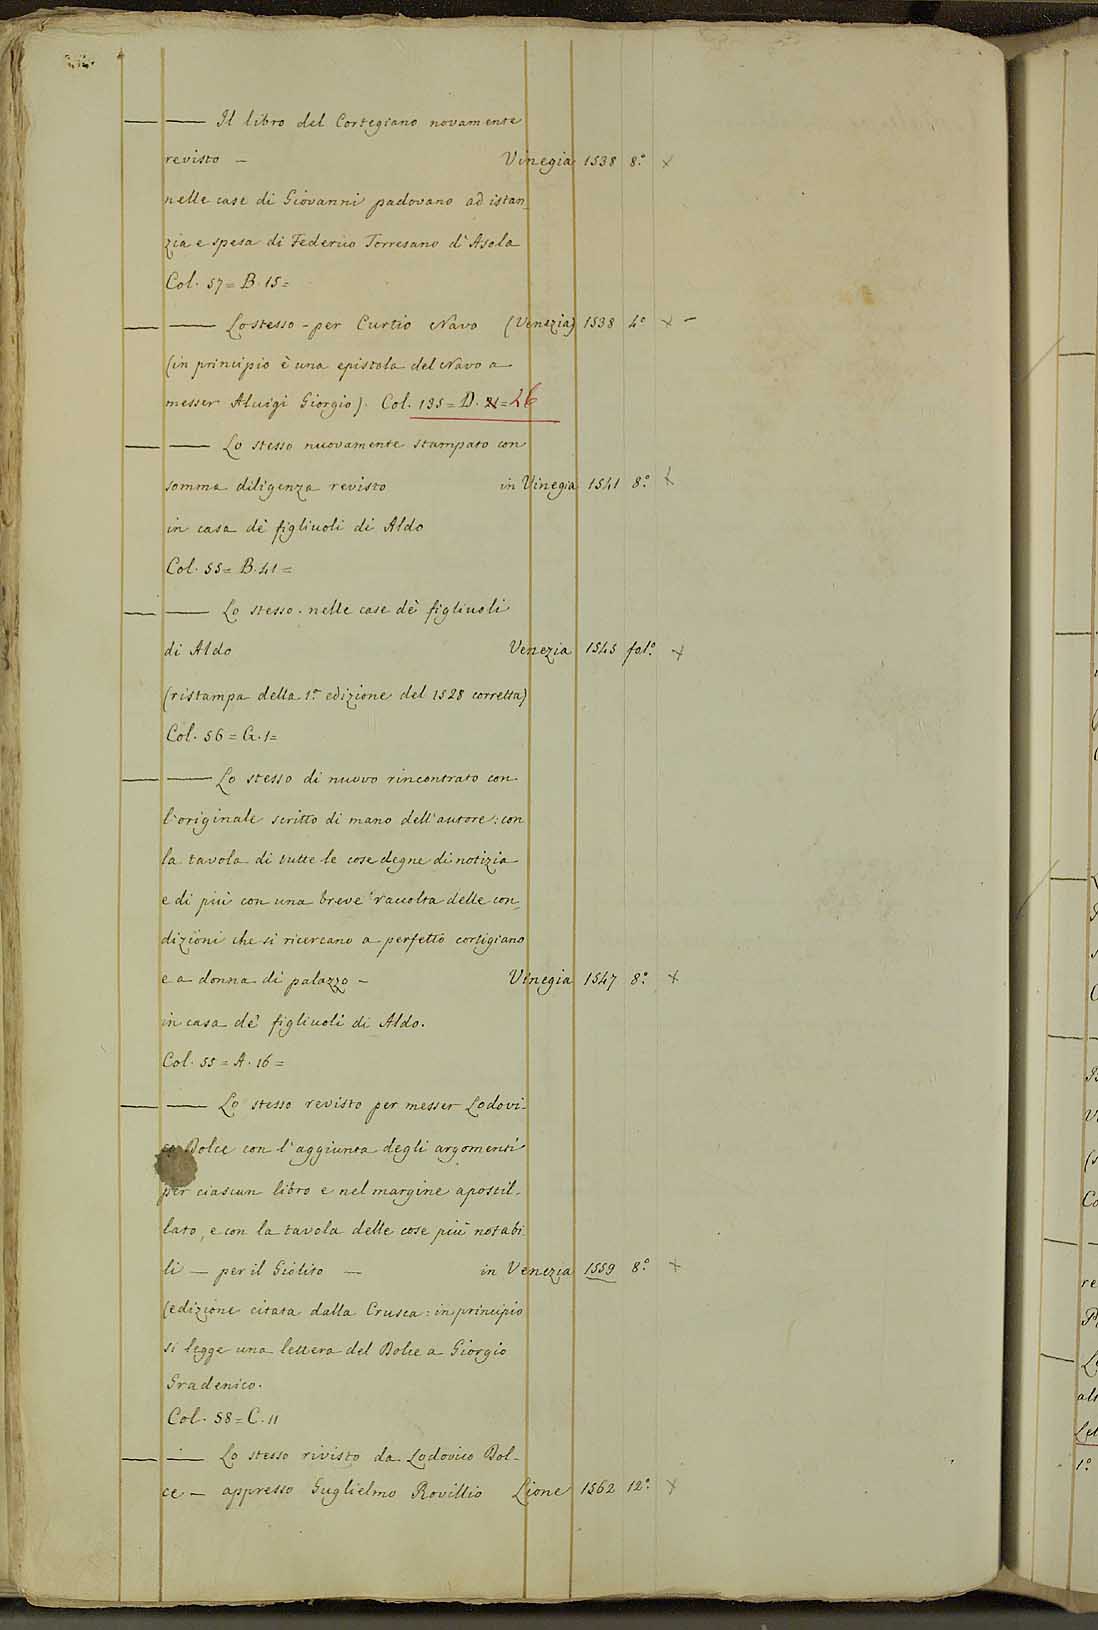 — — Il libro del Cortegiano novamente
revisto — Vinegia 1538 8.º ×
nelle case di Giovanni padovano ad istan-
zia e spesa di Federico Torresano d'Asola
Col. 57 = B. 15 =
— — Lo stesso - per Curtio Navo (Venezia) 1538 4º × –
(in principio è una epistola del Navo a
messer Aluigi Giorgio). Col. 135 = D. 21 = 26
— — Lo stesso nuovamente stampato con
somma diligenza revisto in Vinegia 1541 8.º ×
in casa de' figliuoli di Aldo
Col. 55 = B. 41 =
— — Lo stesso. nelle case de' figliuoli
di Aldo Venezia 1545 fol.º ×
(ristampa della 1.ª edizione del 1528 corretta)
Col. 56 = G. 1 =
— — Lo stesso di nuovo rincontrato con
l'originale scritto di mano dell'autore: con
la tavola di tutte le cose degne di notizia
e di più con una breve raccolta delle con-
dizioni che si ricercano a perfetto cortigiano
e a donna di palazzo — Vinegia 1547 8.º ×
in casa de' figliuoli di Aldo.
Col. 55 = A. 16 =
— — Lo stesso revisto per messer Lodovi-
co Dolce con l'aggiunta degli argomenti
per ciascun libro e nel margine apostil-
lato, e con la tavola delle cose più notabi
li — per il Giolito — in Venezia 1559 8.º ×
(edizione citata dalla Crusca: in principio
si legge una lettera del Dolce a Giorgio
Gradenico.
Col. 58 = C. 11
— — Lo stesso rivisto da Lodovico Dol-
ce — appresso Guglielmo Rovillio Lione 1562 12.º ×